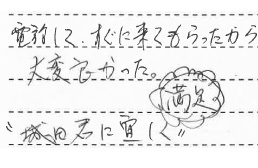 電話して、すぐに来てもらったから
大変良かった。
満足
〝城田君に宜しく〟